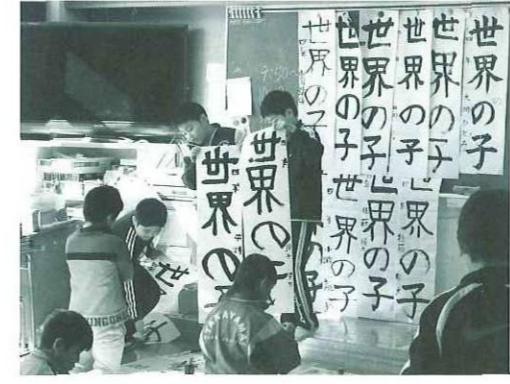 世界の子
世界の子
世界の子
世界の子
世界の子
世界の子
世界の子
世界の子
世界の子
世界の
世界の子
世
子
9:50~